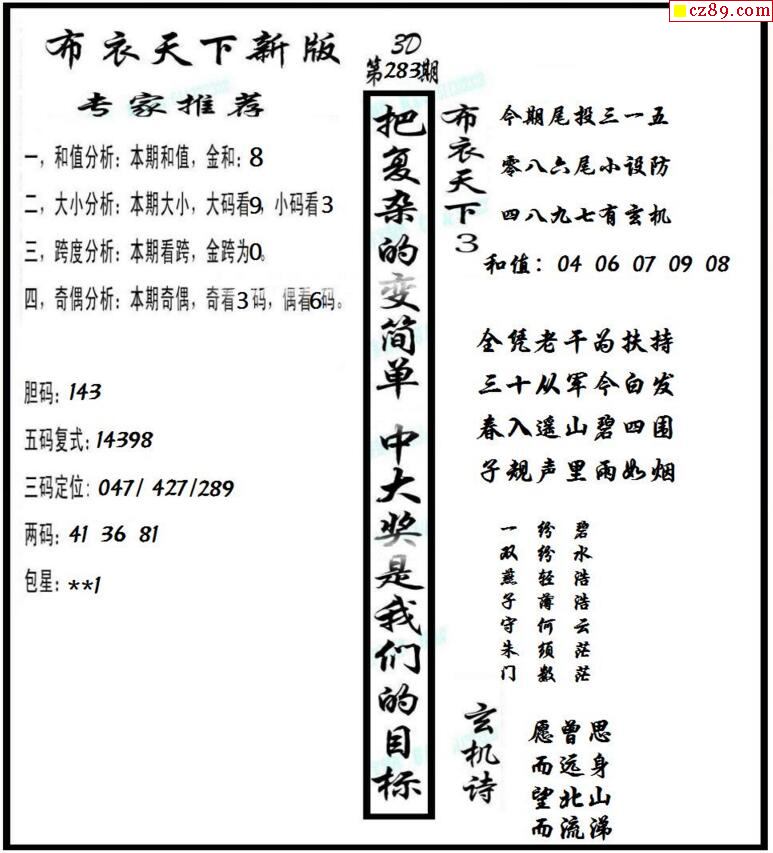 cz89.com
布衣天下新版
3D
第283期
专家推荐
一，和值分析：本期和值，金和：8
二，大小分析：本期大小，大码看9，小码看3
三，跨度分析：本期看跨，金跨为0。
四，奇偶分析：本期奇偶，奇看3码，偶看6码。
胆码：143
五码复式：14398
三码定位：047/ 427/289
两码：41 36 81
包星：**1
把复杂的变简单 中大奖是我们的目标
布衣天下3
今期尾投三一五
零八六尾小设防
四八九七有玄机
和值：04 06 07 09 08
全凭老干为扶持
三十从军今白发
春入遥山碧四围
子规声里雨如烟
碧水浩浩云茫茫
纷纷轻薄何须数
一双燕子守朱门
玄机诗
愿曾思
而远身
望北山
而流涕